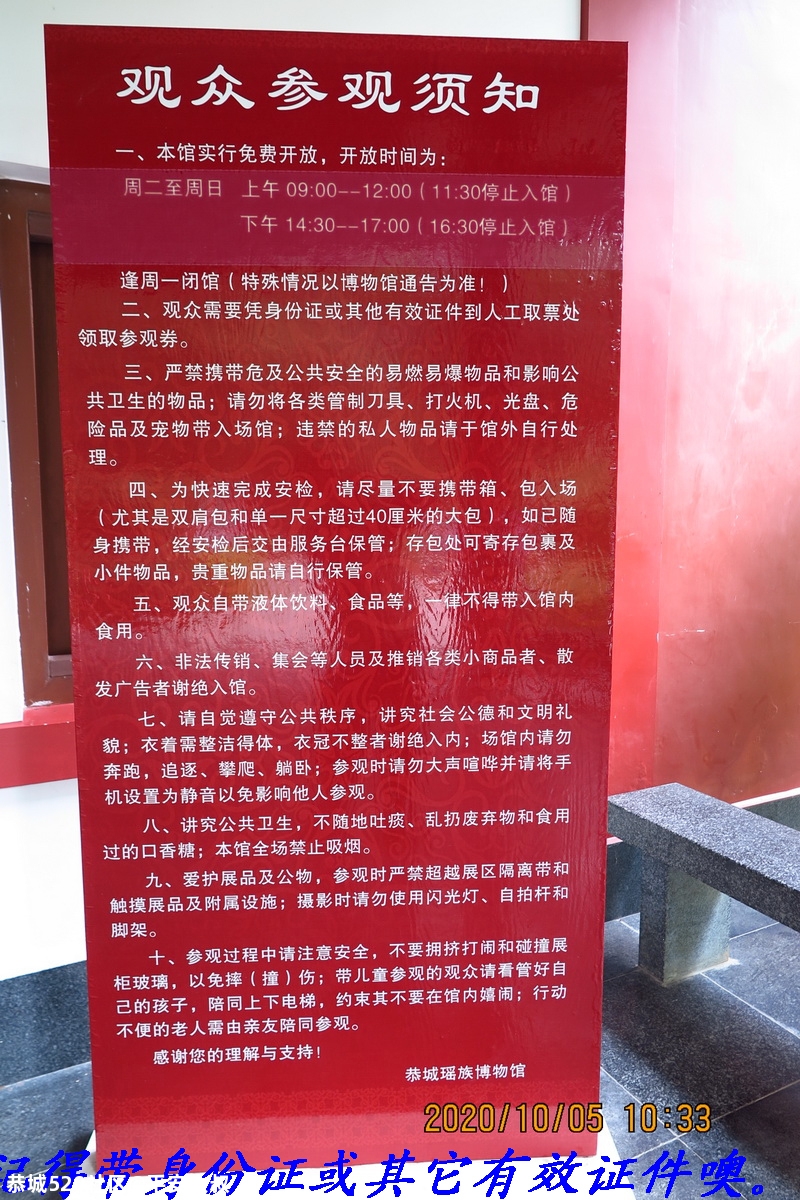 观众参观须知
一、本馆实行免费开放，开放时间为：
周二至周日 上午 09:00--12:00（11:30停止入馆）
下午 14:30--17:00（16:30停止入馆）
逢周一闭馆（特殊情况以博物馆通告为准！）
二、观众需要凭身份证或其他有效证件到人工取票处
领取参观券。
三、严禁携带危及公共安全的易燃易爆物品和影响公
共卫生的物品；请勿将各类管制刀具、打火机、光盘、危
险品及宠物带入场馆；违禁的私人物品请于馆外自行处
理。
四、为快速完成安检，请尽量不要携带箱、包入场
（尤其是双肩包和单一尺寸超过40厘米的大包），如已随
身携带，经安检后交由服务台保管；存包处可寄存包裹及
小件物品，贵重物品请自行保管。
五、观众自带液体饮料、食品等，一律不得带入馆内
食用。
六、非法传销、集会等人员及推销各类小商品者、散
发广告者谢绝入馆。
七、请自觉遵守公共秩序，讲究社会公德和文明礼
貌；衣着需整洁得体，衣冠不整者谢绝入内；场馆内请勿
奔跑，追逐、攀爬、躺卧；参观时请勿大声喧哗并请将手
机设置为静音以免影响他人参观。
八、讲究公共卫生，不随地吐痰、乱扔废弃物和食用
过的口香糖；本馆全场禁止吸烟。
九、爱护展品及公物，参观时严禁超越展区隔离带和
触摸展品及附属设施；摄影时请勿使用闪光灯、自拍杆和
脚架。
十、参观过程中请注意安全，不要拥挤打闹和碰撞展
柜玻璃，以免摔（撞）伤；带儿童参观的观众请看管好自
己的孩子，陪同上下电梯，约束其不要在馆内嬉闹；行动
不便的老人需由亲友陪同参观。
感谢您的理解与支持！
恭城瑶族博物馆
2020/10/05 10:33
记得带身份证或其它有效证件噢。
恭城52